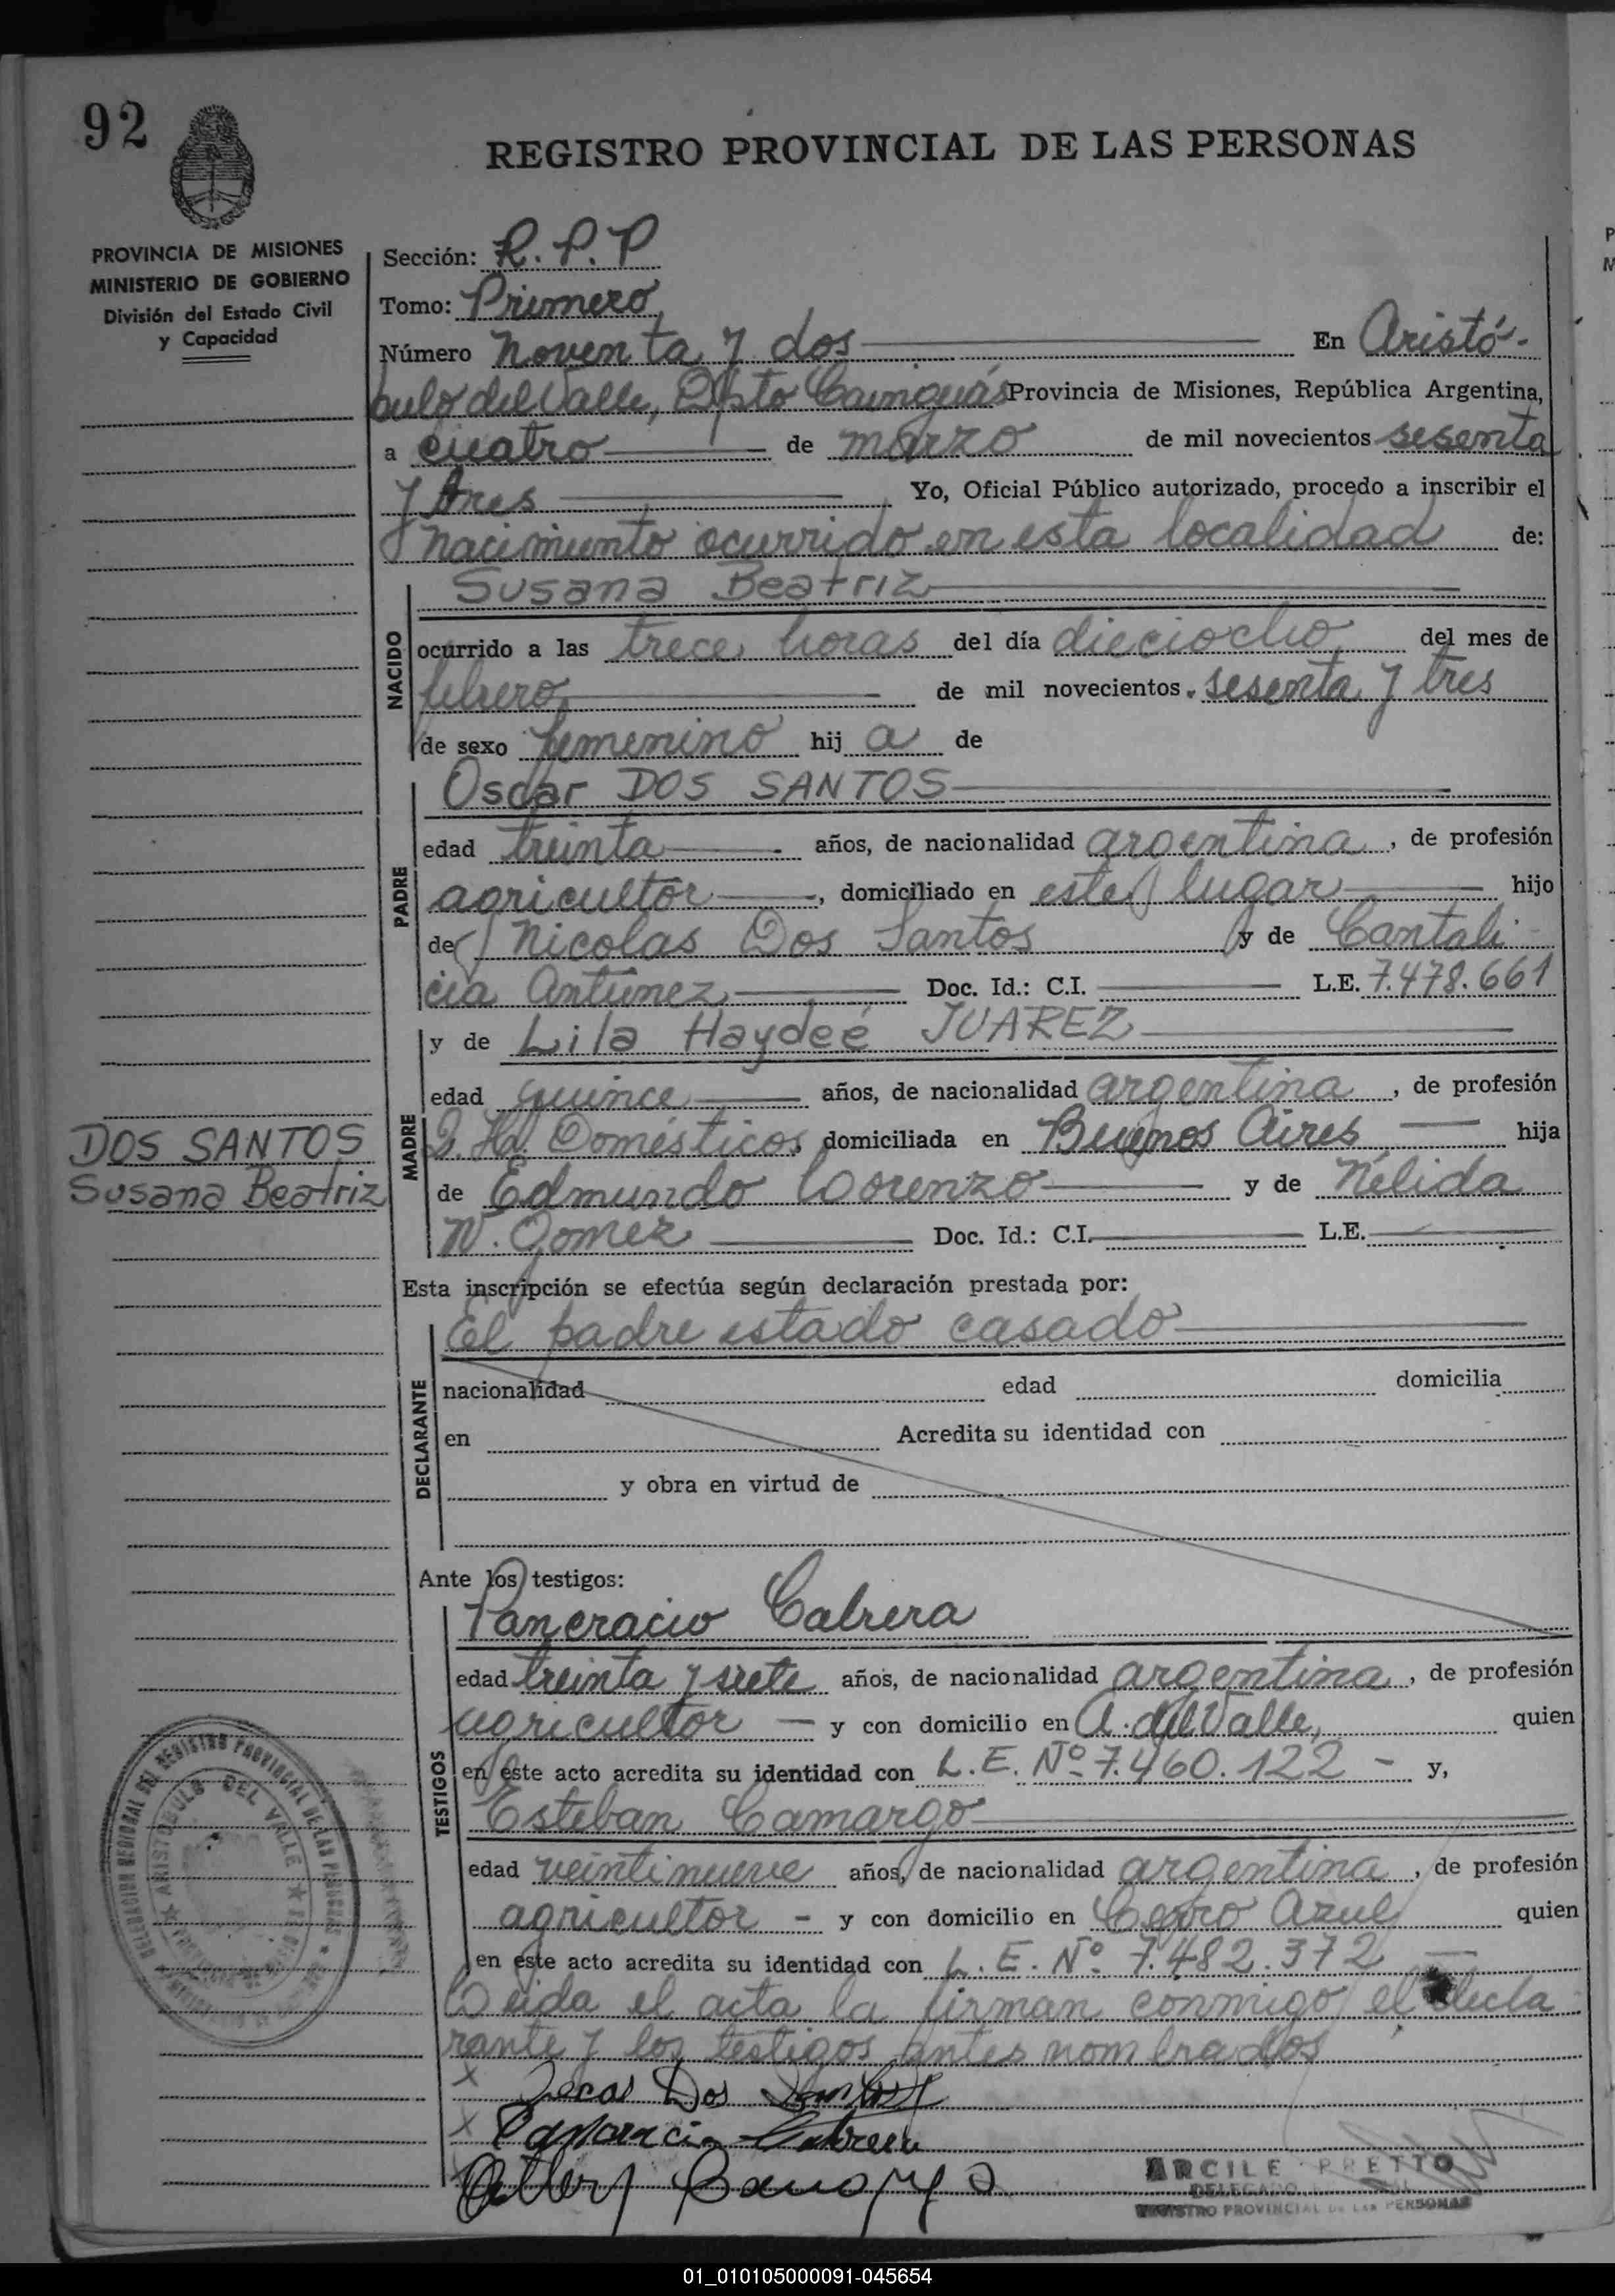 92
REGISTRO PROVINCIAL DE LAS PERSONAS
PROVINCIA DE MISIONES
MINISTERIO DE GOBIERNO
División del Estado Civil
y Capacidad
Sección: R.P.P
Tomo: Primero
Número Noventa y dos En Aristó-
bulo del Valle, Dpto Cainguás Provincia de Misiones, República Argentina,
a cuatro de marzo de mil novecientos sesenta
y tres Yo, Oficial Público autorizado, procedo a inscribir el
nacimiento ocurrido en esta localidad de:
NACIDO
Susana Beatriz
ocurrido a las trece horas del día dieciocho del mes de
febrero de mil novecientos sesenta y tres
de sexo femenino hij a de
PADRE
Oscar DOS SANTOS
edad treinta años, de nacionalidad argentina, de profesión
agricultor, domiciliado en este lugar hijo
de Nicolas Dos Santos y de Cantali
cia Antunez Doc. Id.: C.I. L.E. 7.478.661
MADRE
y de Lila Haydeé JUAREZ
edad quince años, de nacionalidad argentina, de profesión
Q. Hd. Domésticos domiciliada en Buenos Aires hija
de Edmundo Lorenzo y de Nélida
N. Gomez Doc. Id.: C.I. L.E.
DOS SANTOS
Susana Beatriz
Esta inscripción se efectúa según declaración prestada por:
DECLARANTE
El padre estado casado
nacionalidad edad domicilia
en Acredita su identidad con
y obra en virtud de
Ante los testigos:
TESTIGOS
Pancracio Cabrera
edad treinta y siete años, de nacionalidad argentina, de profesión
agricultor - y con domicilio en A. del Valle, quien
en este acto acredita su identidad con L.E. Nº 7.460.122 - y,
Esteban Camargo
edad veintinueve años, de nacionalidad argentina, de profesión
agricultor - y con domicilio en Cerro Azul quien
en este acto acredita su identidad con L.E. Nº 7.482.372
Leida el acta la firman conmigo el decla
rante y los testigos antes nombrados
x Oscar Dos Santos
x Cabrera
DELEGACION REGIONAL DEL REGISTRO PROVINCIAL DE LAS PERSONAS
ARISTOBULO DEL VALLE
ARCILE PRETTO
DELEGADO
REGISTRO PROVINCIAL DE LAS PERSONAS
01_010105000091-045654